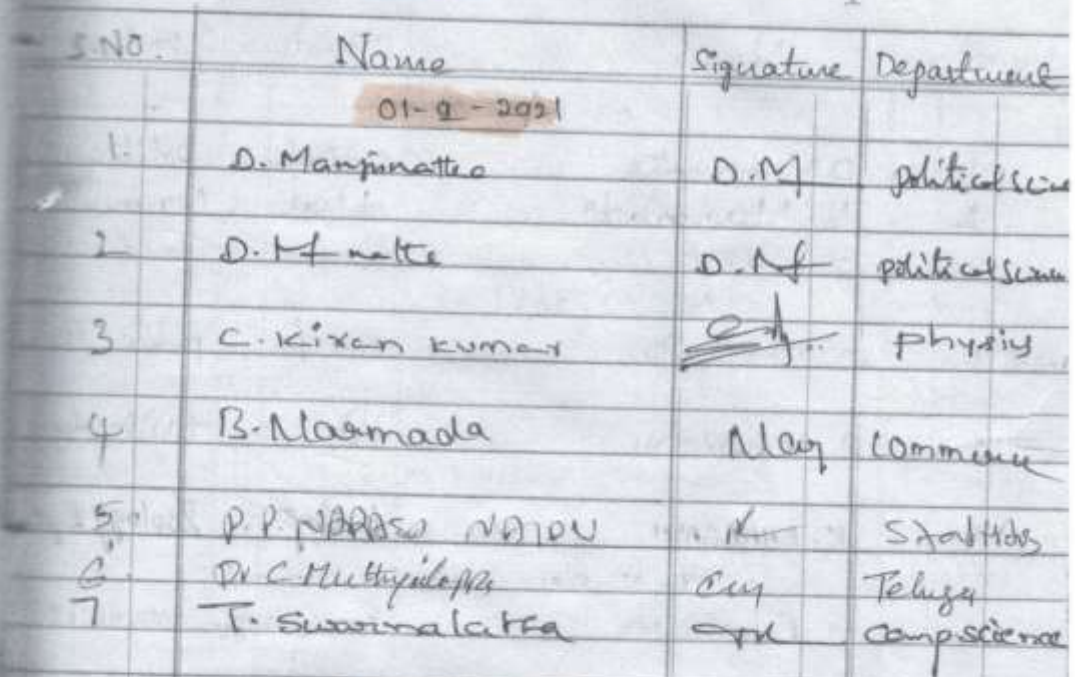 S.NO. Name Signature Department
01-9-2021
1. D. Manjunatha D.M political scien
2 D. M D. M political scien
3 C. Kiran Kumar physics
4 B. Narmada Nar commerce
5 P.P. NARASA NAIDU Statitics
6 Dr C Muthyalappa Telugu
7 T. Swarnalatha comp science